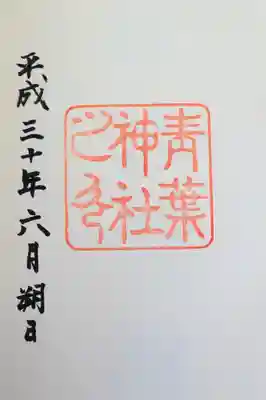 青葉
神社
之印
平成三十年六月朔日